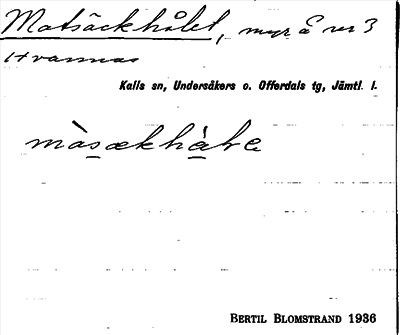 Matsäckhålet, myr å ver 3
Hvarmas
Kalls sn, Undersåkers o. Offerdals tg, Jämtl. l.
màsækhàLe
BERTIL BLOMSTRAND 1936